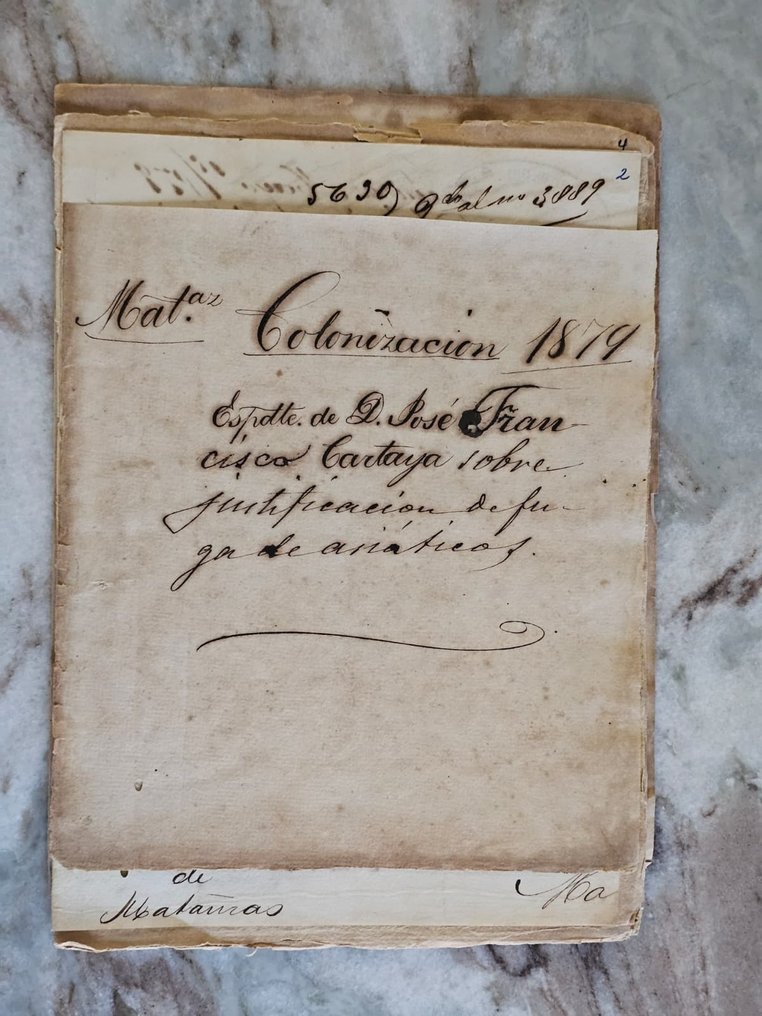 4
2
5639 al nº 3889
Mat.az Colonización 1879
Espdte. de D. José Fran-
cisco Cartaya sobre
justificacion de fu-
ga de asiáticos.
de
Matanzas
Ma